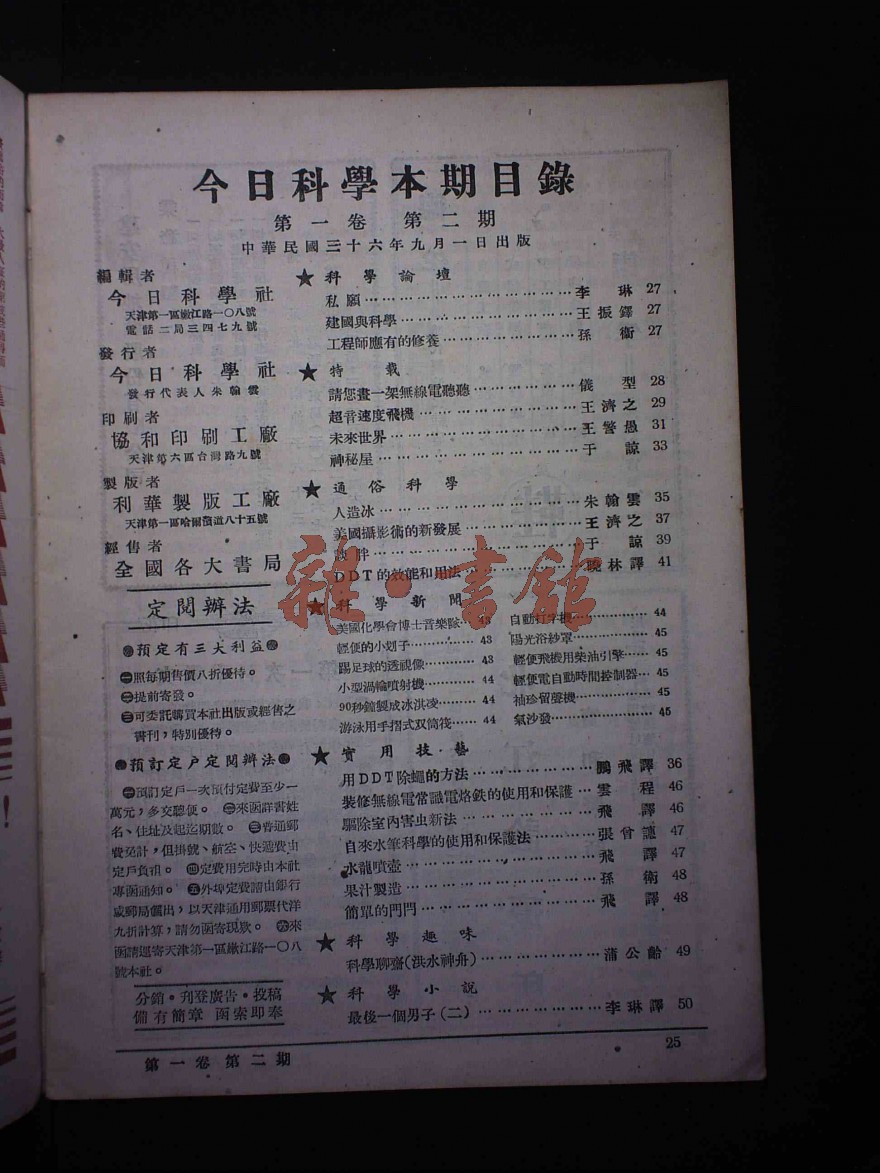 今日科學本期目錄
第一卷 第二期
中華民國三十六年九月一日出版
編輯者
今日科學社
天津第一區緻江路一〇八號
電話二局三四七九號
發行者
今日科學社
發行代表人朱翰雲
印刷者
協和印刷工廠
天津第六區台灣路九號
製版者
利華製版工廠
天津第一區哈爾濱道八十五號
經售者
全國各大書局
定閱辦法
●預定有三大利益●
㊀照每期售價八折優待。
㊁提前寄發。
㊂可委託購買本社出版或經售之
書刊,特別優待。
●預訂定戶定閱辦法●
㊀預訂定戶一次預付定費至少一
萬元,多交聽便。㊁來函詳書姓
名、住址及起迄期數。㊂普通郵
費免計,但掛號、航空、快遞費由
定戶負担。㊃定費用完時由本社
專函通知。㊄外埠定費請由銀行
或郵局匯出,以天津通用郵票代洋
九折計算,請勿函寄現欵。㊅來
函請逕寄天津第一區緻江路一〇八
號本社。
分銷・刊登廣告・投稿
備有簡章 函索即奉
★科學論壇
私願……李琳 27
建國與科學……王振鐸 27
工程師應有的修養……孫衞 27
★特載
請您畫一架無線電聽聽……儀型 28
超音速度飛機……王濟之 29
未來世界……王警愚 31
神秘屋……于諒 33
★通俗科學
人造冰……朱翰雲 35
美國攝影術的新發展……王濟之 37
談胖……于諒 39
DDT的效能和用法……曉林譯 41
★科學新聞
美國化學會博士音樂隊……43
輕便的小划子……43
踢足球的透視像……43
小型渦輪噴射機……44
90秒鐘製成冰淇凌……44
游泳用手摺式双筒筏……44
自動打字機……44
陽光浴紗罩……45
輕便飛機用柴油引擎……45
輕便電自動時間控制器…45
袖珍留聲機……45
氣沙發……45
★實用技藝
用DDT除蠅的方法……鵬飛譯 36
裝修無線電常識電烙鉄的使用和保護…雲程 46
驅除室內害虫新法……飛譯 46
自來水筆科學的使用和保護法……張曾譓 47
水龍噴壺……飛譯 47
果汁製造……孫衛 48
簡單的門閂……飛譯 48
★科學趣味
科學聊齋(洪水神舟)……蒲公齡 49
★科學小說
最後一個男子(二)……李琳譯 50
第一卷 第二期
25
雜・書館